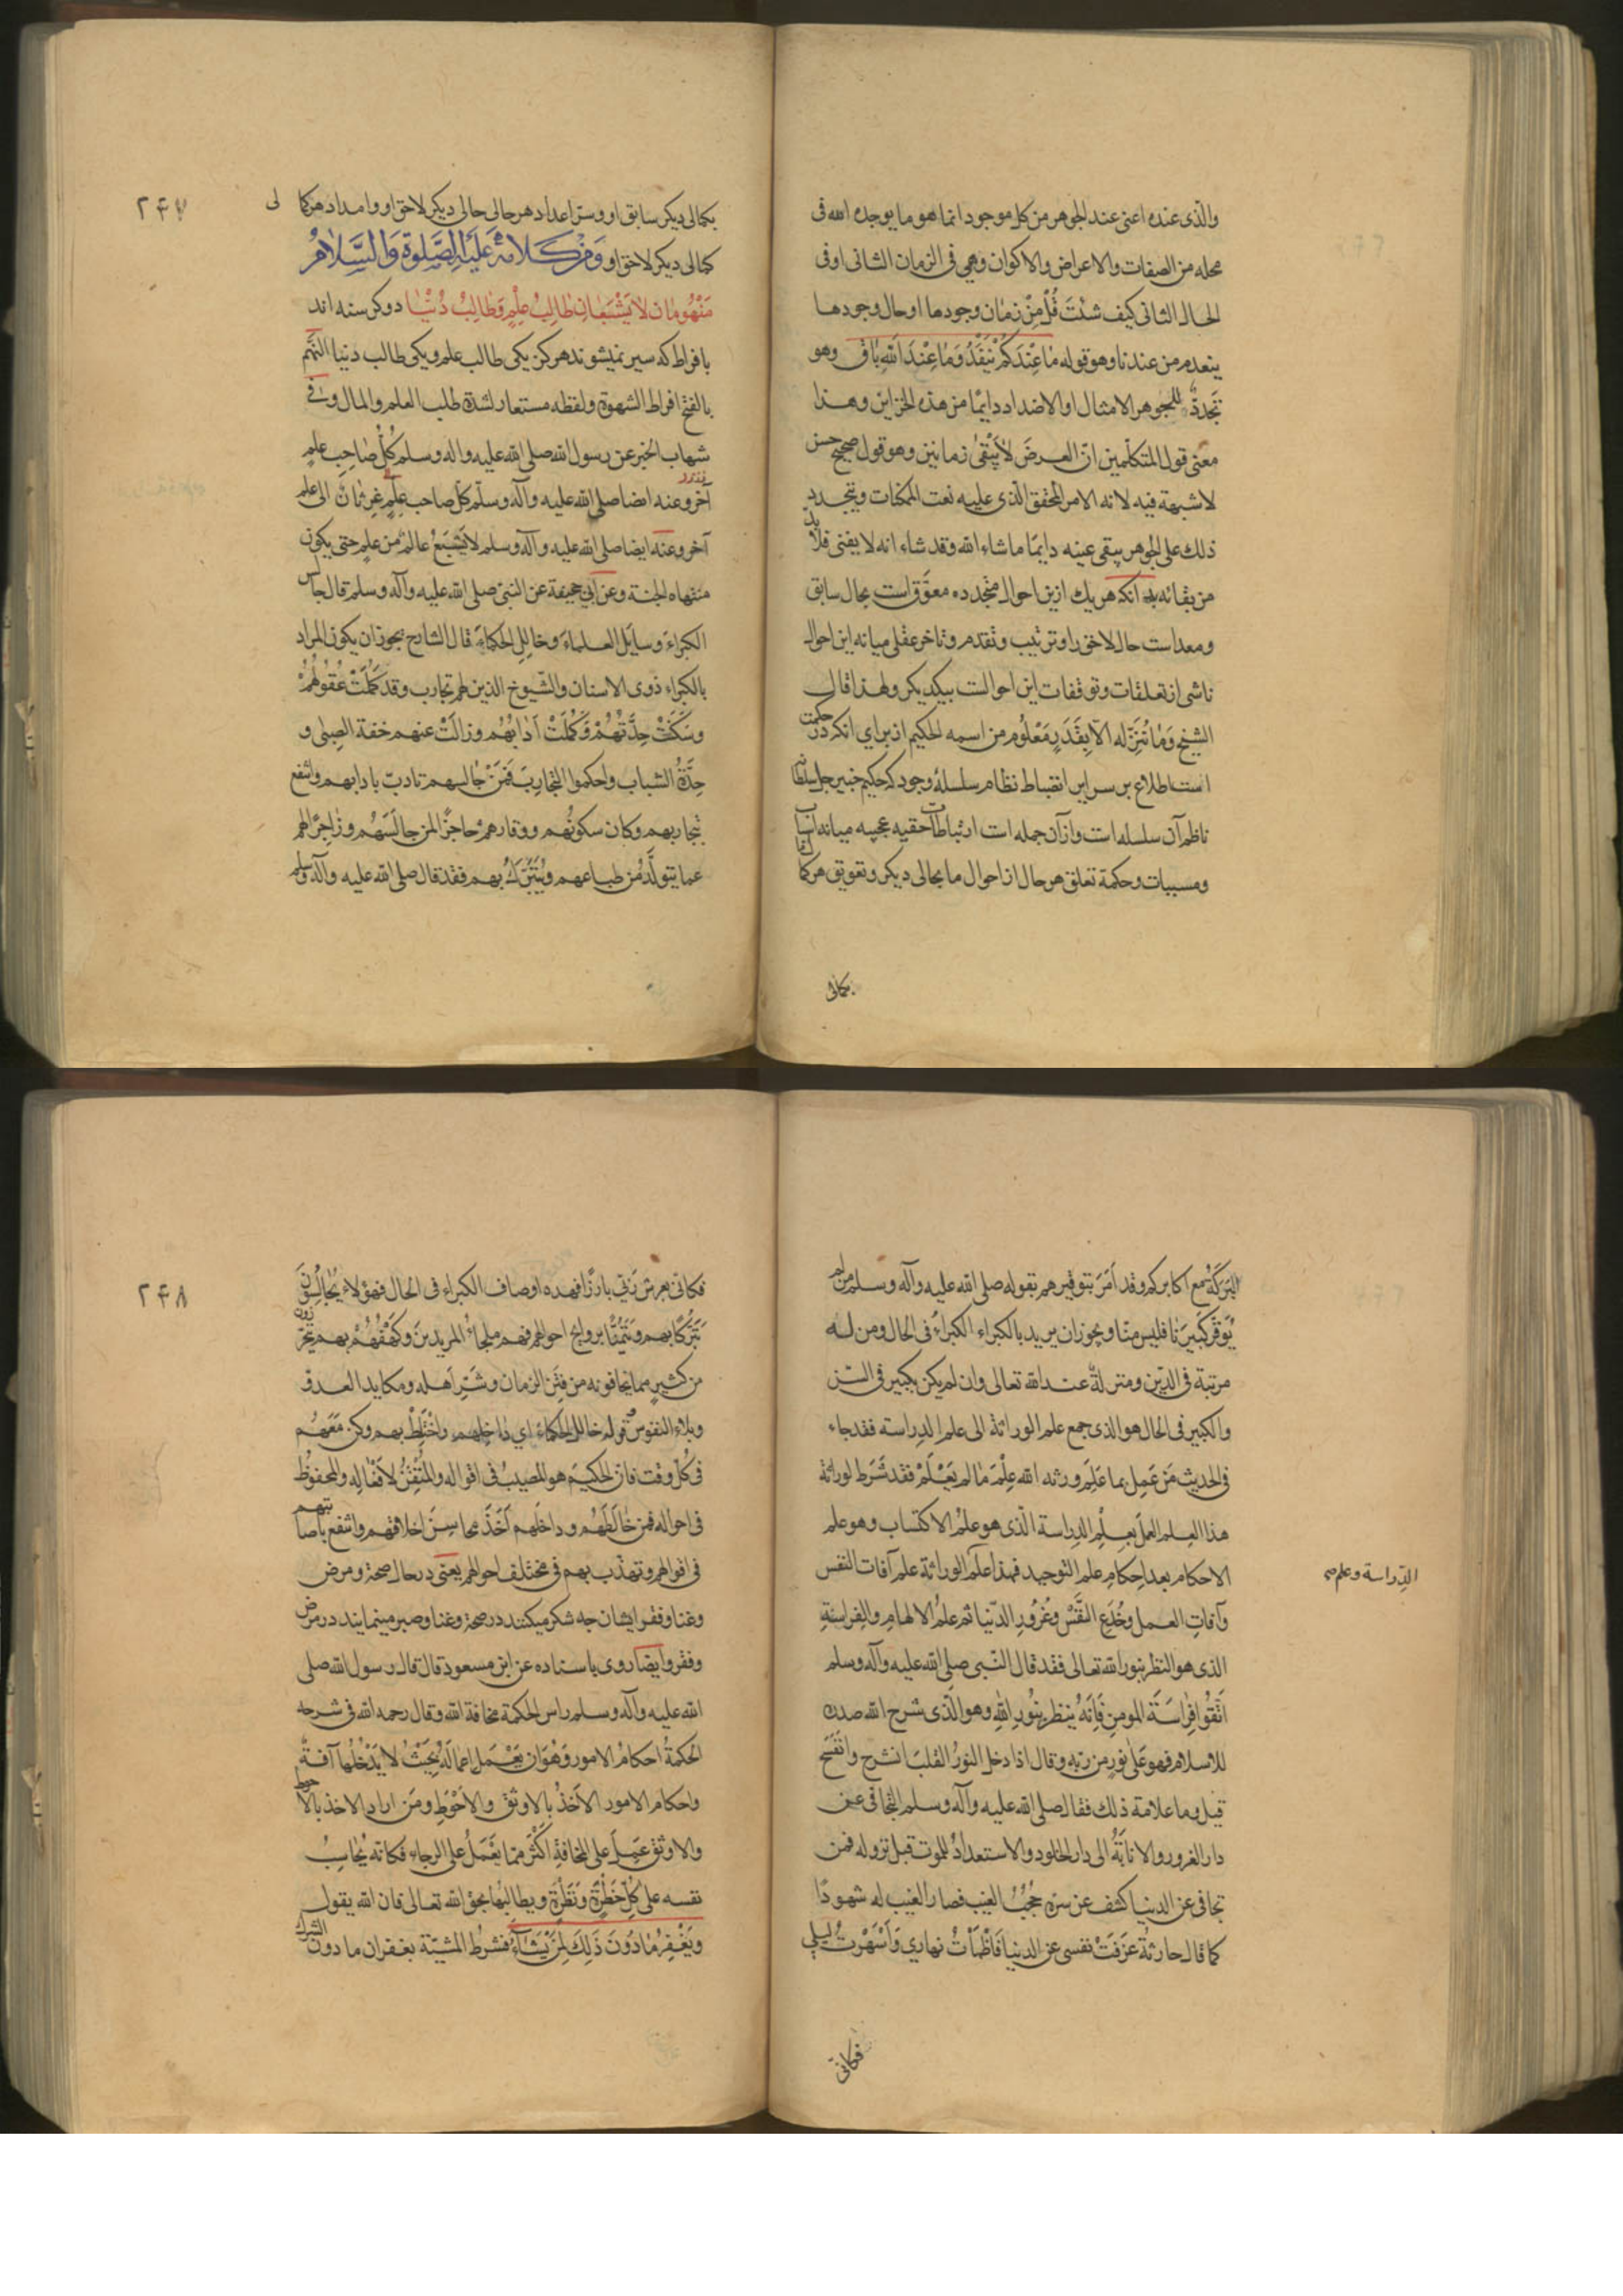 والذى عنده اعنى عند الجوهر من كل موجود انما هو ما يوجده الله فى
محله من الصفات والاعراض والاكوان وهى فى الزمان الثانى او فى
الحال الثانى كيف شئت قُلْ مِنْ زمان وجودها او حال وجودها
ينعدم من عندنا وهو قوله مٰا عِنْدَكُمْ يَنْفَدُ وَمٰا عِنْدَ اللهِ بٰاقٍ وهو
تجدد للجوهر الامثال او الاضداد دايمًا من هذه الخزاين وهذا
معنى قول المتكلمين انّ العرضَ لٰا يَبْقىٰ زمانين وهو قول صحيح حسن
لا شبهة فيه لانه الامر المحقق الّذى عليه نعت الممكنات وبتجدد
ذلك على الجوهر يبقى عينه دايمًا ما شاء الله وقد شاء انه لا يفنى فلا بد
من بقائه بدانكه هر يك ازين احوال متجدده معوَّق است بحال سابق
ومعد است حال لاحق را وترتيب وتقدم وتاخر عقلى ميانه اين احوال
ناشى از تعلقات وتوقفات اين احوالست بيكديكر ولهذا قال
الشيخ وَمٰا نُنَزِّله الّا بِقَدَرٍ مَعْلُوم من اسمه الحكيم از براى انكه در حكمت
است اطلاع بر سر اين انضباط نظام سلسلۀ وجود كه حكيم خبير جل سلطانه
ناظم آن سلسله است وازآن جمله است ارتباطات حقيه عجيبه ميانه اسباب
ومسببات وحكمة تعلق هر حال از احوال ما بحالى ديكر وتعويق هر كمالى
بكمالى
٢۴٧
بكمالى ديكر سابق او وستر اعداد هر حالى حالى ديكر لاحق او وامداد هر كمالى
كمالى ديكر لاحق او وَمِنْ كَلامِهِ عَلَيْهِ الصَّلوةُ وَالسَّلٰامُ
مَنْهُومٰان لٰا يَشْبَعٰانِ طٰالِبُ عِلْمٍ وَطٰالِبُ دُنْيٰا دو كرسنه اند
بافراط كه سير نميشوند هركز يكى طالب علم ويكى طالب دنيا النَّهَم
بالفتح افراط الشهوة ولفظه مستعار لشدة طلب العلم والمال وفى
شهاب الخبر عن رسول الله صلى الله عليه واله وسلم كُلُّ صٰاحِبِ علمٍ
آخر وعنه ايضا صلى الله عليه وآله وسلّم كلّ صاحب عِلْمٍ غرثٰان الى علم
آخر وعنه ايضا صلى الله عليه وآله وسلم لا يَشْبَعُ عالمٌ من علمٍ حتى يكون
منتهاه الجنة وعن ابى جحيفة عن النبى صلى الله عليه وآله وسلم قال جالس
الكبراءَ وسايل العلماءَ وخالل الحكماءَ قال الشارح يجوز ان يكون المراد
بالكبراء ذوى الاسنان والشيوخ الذين لهم تجارب وقد كَمُلَتْ عُقُولُهُمْ
وسَكَنَتْ حِدَّتُهُمْ وَكَمُلَتْ آدٰابُهُم وزالَتْ عنهم خفة الصِبىٰ و
حِدَّةُ الشباب واحكموا التجاربَ فَمَنْ جٰالسهم تادب بادابهم وانتفع
بتجاربهم وكان سكونُهم ووقارهم حاجزًا لمن جالَسَهُم وزاجرًا لهم
عما يتولَّدُ من طباعهم ويُتَبَرَّكُ بهم فقد قال صلى الله عليه وآله وسلم
البَرَكَةُ مع اكابركم وقد اَمَرَ بتوقيرهم بقوله صلى الله عليه وآله وسلم من لم
يُوَقِّرْ كَبيرَنا فليس منّا ويجوز ان يريد بالكبراء الكبراءُ فى الحال ومن له
مرتبة فى الدّين ومنزلة عند الله تعالى وان لم يكن بكبير فى السن
والكبير فى الحال هو الذى جمع علم الوراثة الى علم الدِراسة فقد جاء
فى الحديث مَن عَمِل بما عَلِمَ ورثه الله علمَ مٰا لم يَعْلَمْ فقد شَرَط لوراثة
هذا العلم العملَ بعلم الدِراسة الّذى هو علمُ الاكتساب وهو علم
الاحكام بعد احكام علم التوحيد فهذا علم الوراثة علم آفات النفس
الدِّراسة وعلم صح
وآفاتِ العمل وخُدَعِ النفس وغُرُورِ الدّنيا ثم علمُ الالهام والفِراسةِ
الذى هو النظر بنور الله تعالى فقد قال النّبى صلى الله عليه وآله وسلم
اتَّقُوا فِرٰاسَةَ المومن فَاِنّهُ يَنظر بنُورِ اللهِ وهو الّذى شرح الله صدره
للاسلام فهو عَلى نورٍ من ربّه وقال اذا دخل النورُ القلبَ انشرح وانفسَح
قيل وما علامة ذلك فقال صلى الله عليه وآله وسلم التجافى عن
دار الغرور والانابَةُ الى دار الخلود والاستعدادُ للموت قبل نزوله فمن
تجافى عن الدنيا كشف عن سرّه حُجُبُ الغيب فصار الغيب له شهودًا
كما قال حارثة عزَفَتْ نفسى عن الدنيا فَاَظْمَأْتُ نهارى وَاَسْهَرْتُ ليلى
فكانى
٢۴٨
فكانى بعرش ربّى بارزًا فهذه اوصاف الكبراء فى الحال فهؤلاء يُجٰالَسُون
تَبَرُّكًا بهم وتَيَمُّنًا بروايح احوالهم فهم ملجاءُ المريدين وكَهْفُهُمْ بهم يتحرزون
من كثيرٍ مما يخافونه من فِتَن الزمان وشَرِّ اَهله ومكايد العدوّ
وبلاء النفوس قوله خالل الحكماءَ اى دٰاخِلهم واخْتَلِطْ بهم وكن مَعَهُم
فى كُلّ وقت فان الحكيمَ هو المصيبُ فى اقواله والمُتْقِنُ لاَفْعٰالِه والمحفوظ
فى احواله فمن خٰالَطَهُم وداخَلهم اَخَذَ محاسِنَ اخلاقهم وانتفع باصابتهم
فى اقوالهم وتهذّب بهم فى مختلف احوالهم يعنى در حال صحة ومرض
وغنا وفقر ايشان چه شكر ميكنند در صحة وغنا وصبر مينمايند در مرض
وفقر وايضا روى باسناده عن ابن مسعود قال قال رسول الله صلى
الله عليه وآله وسلم راس الحكمة مخافة الله وقال رحمه الله فى شرحه
الحكمةُ احكامُ الامور وَهُوَ ان يَعْمَل اعمالَهُ بِحَيْثُ لا يَدْخُلُها آفةٌ
واحكام الامور الاَخذُ بالاوثق والاَحْوَطِ ومَن اراد الاخذ بالاحوط
والاوثق عَمِلَ على المخافةِ اَكْثَر ممّا يَعْمَلُ على الرجاء فكانّه يُحٰاسِبُ
نفسه على كُلِّ خَطْرَةٍ وَنَظْرَةٍ ويطالِبُها بحق الله تعالى فان الله يقول
ويَغْفِرُ مٰا دُوُنَ ذَلِكَ لِمَنْ يَشٰاءُ فشرط المشيّة بغفران ما دون الشرك